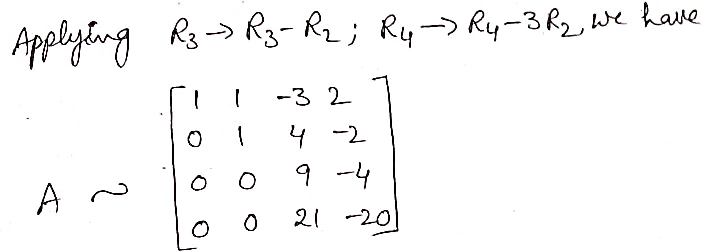 Applying R3 → R3 - R2 ; R4 → R4 - 3R2, we have
1 1 -3 2
0 1 4 -2
A ~ 0 0 9 -4
0 0 21 -20